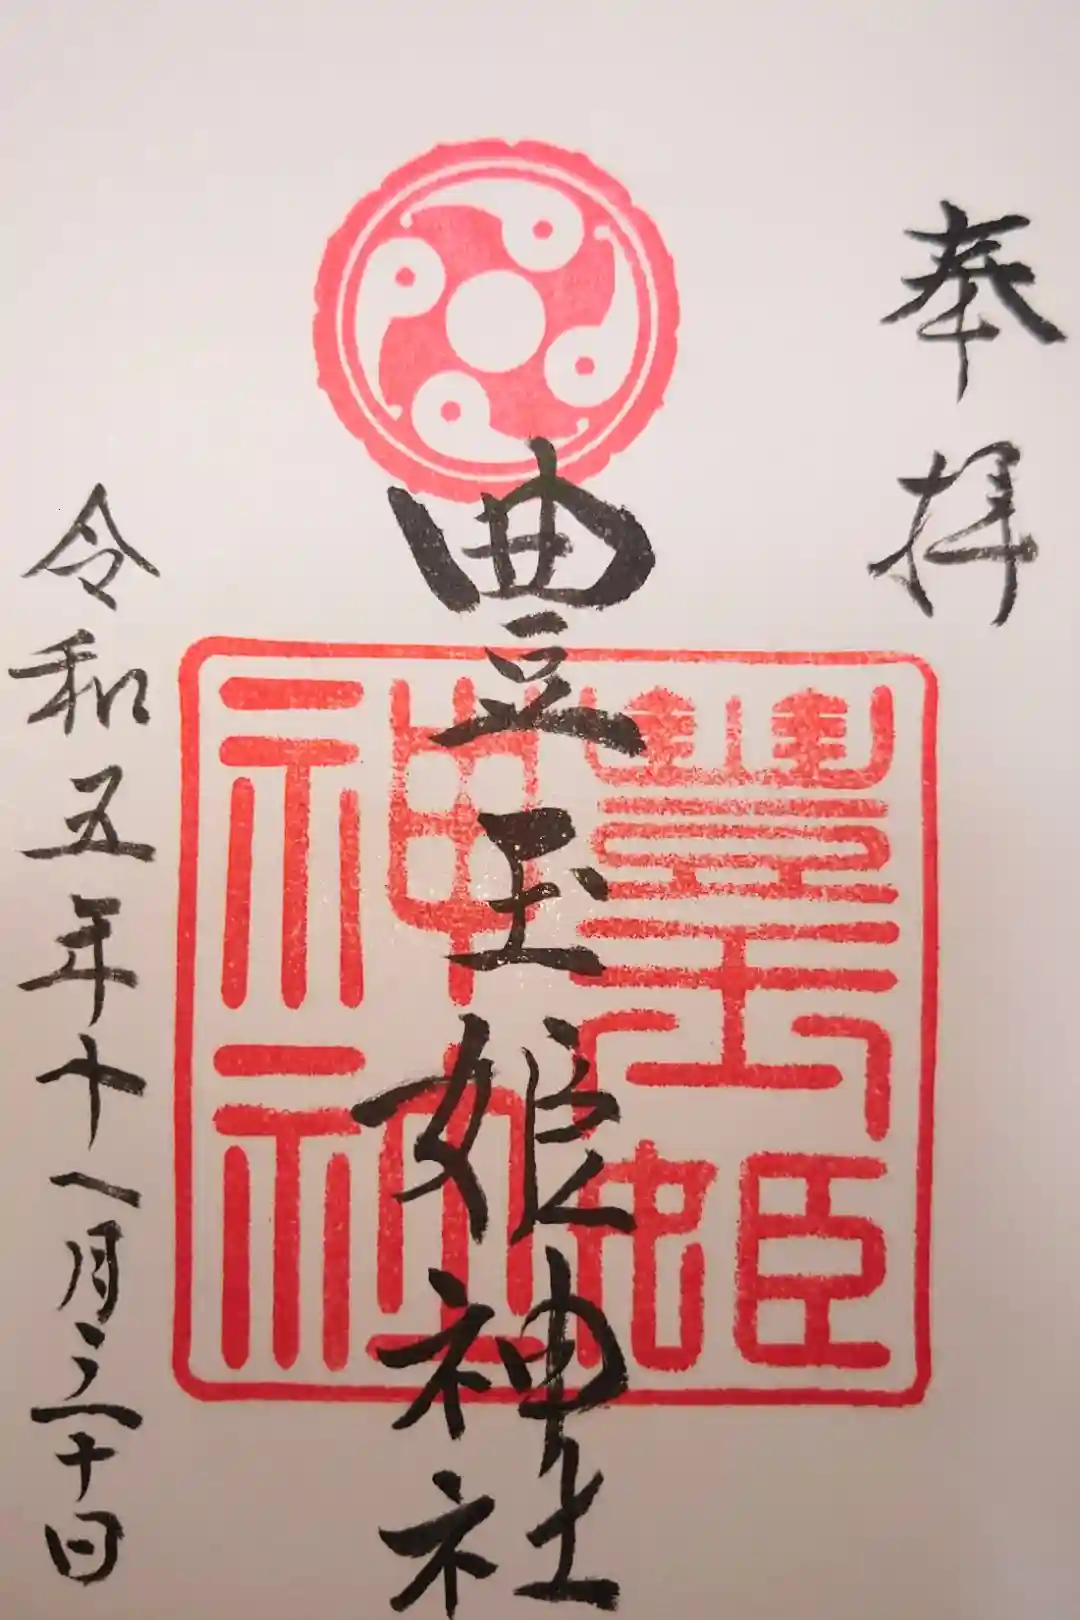 奉拝
豊玉姫神社
豐玉姫
神社
令和五年十一月三十日